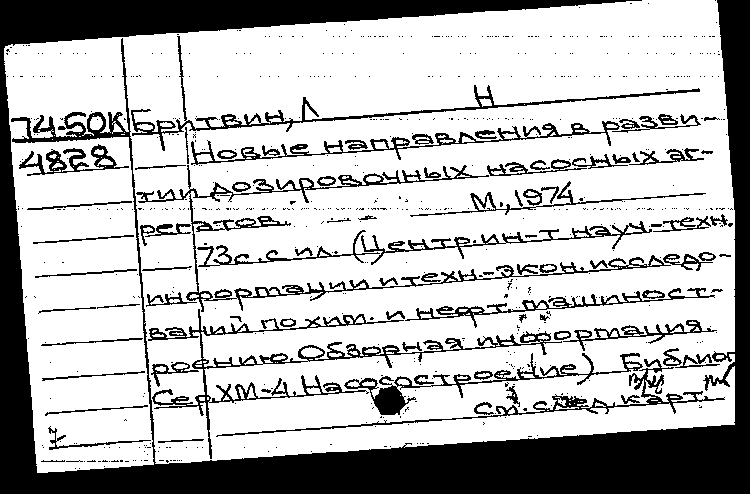 74-50К Бритвин, Л Н
4828 Новые направления в разви-
тии дозировочных насосных аг-
регатов. М., 1974.
73с. с ил. (Центр. ин-т науч.-техн.
информации и техн.-экон. исследо-
ваний по хим. и нефт. машиност-
роению. Обзорная информация.
Сер. ХМ-4. Насосостроение) Библиог
См. след. карт.